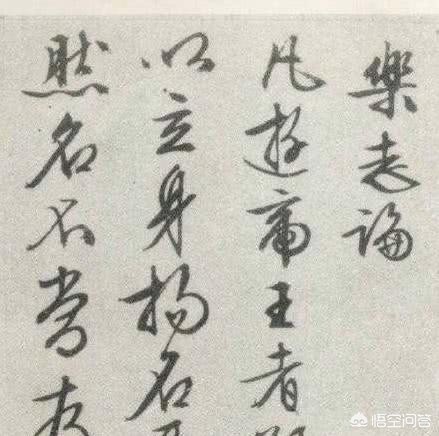 樂志論
凡遊帝王者
以立身揚名
然名不常存
悟空问答